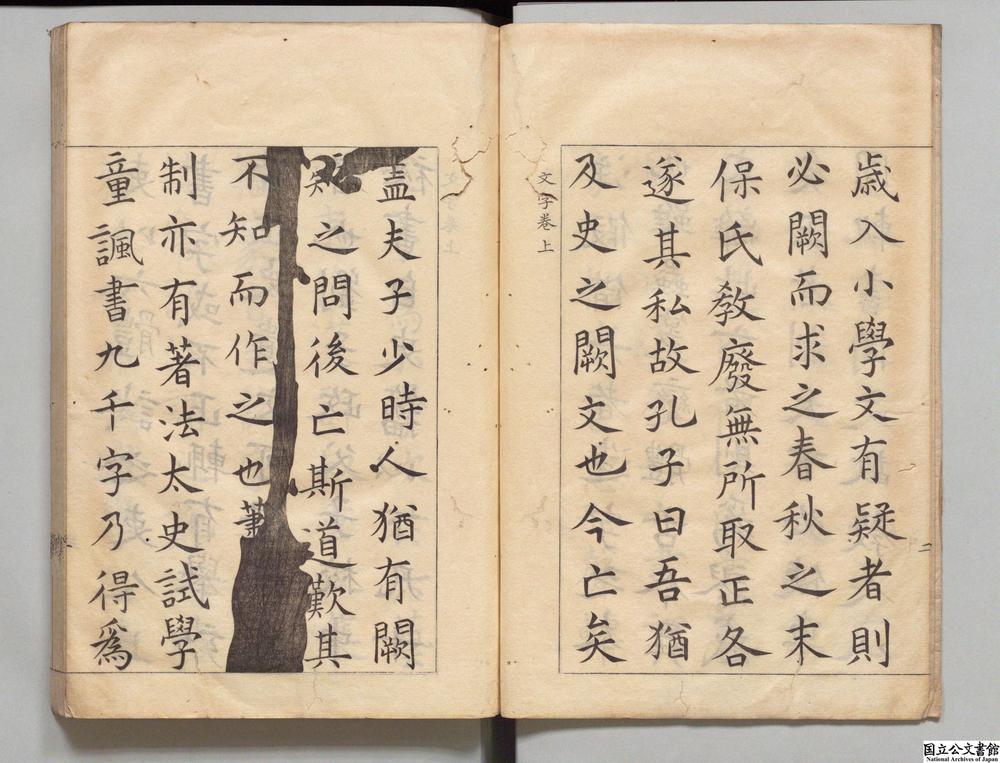 歳入小學文有疑者則
必闕而求之春秋之末
保氏敎廢無所取正各
遂其私故孔子曰吾猶
及史之闕文也今亡矣
文字卷上
盖夫子少時人猶有闕
之問後亡斯道歎其
不知而作之也蕭
制亦有著法太史試學
童諷書九千字乃得爲
国立公文書館
National Archives of Japan